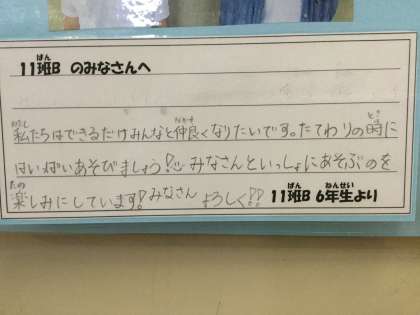 11班B のみなさんへ
私たちはできるだけみんなと仲良くなりたいです。たてわりの時に
はいぱいあそびましょう!みなさんといっしょにあそぶのを
楽しみにしています!みなさん よろしく!!
11班B 6年生より